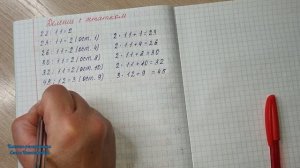 Деление с остатком
22 : 11 = 2
23 : 11 = 2 (ост. 1)
26 : 11 = 2 (ост. 4)
30 : 11 = 2 (ост. 8)
32 : 11 = 2 (ост. 10)
45 : 12 = 3 (ост. 9)
2 · 11 + 1 = 23
2 · 11 + 4 = 26
2 · 11 + 8 = 30
2 · 11 + 10 = 32
3 · 12 + 9 = 45